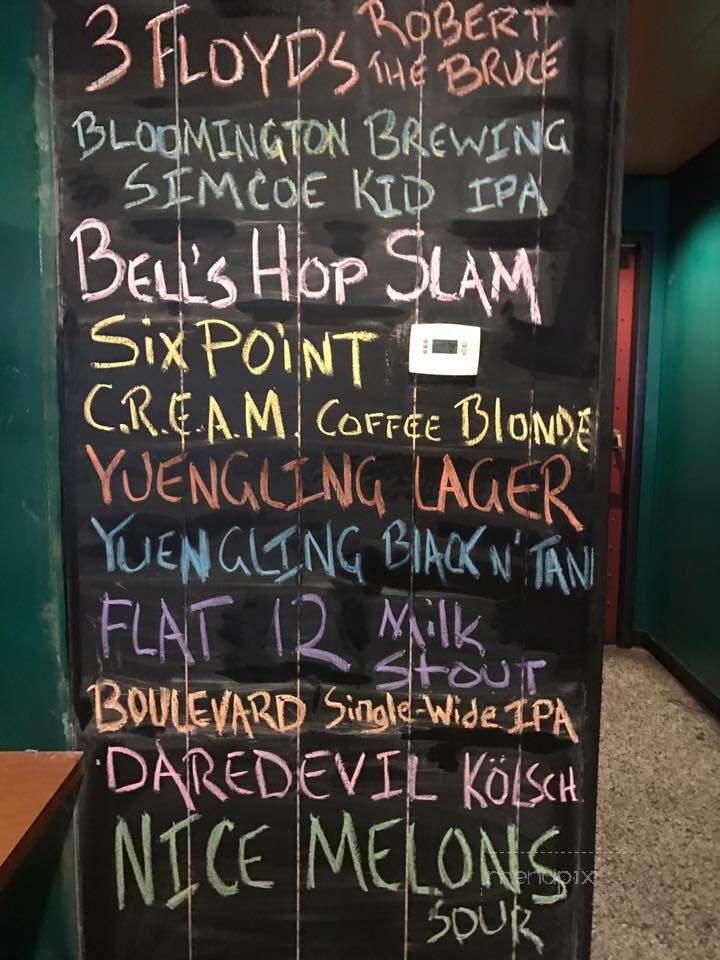 3 FLOYDS ROBERT
THE BRUCE
BLOOMINGTON BREWING
SIMCOE KID IPA
BELL'S HOP SLAM
SIX POINT
C.R.E.A.M. COFFEE BLONDE
YUENGLING LAGER
YUENGLING BLACK N' TAN
FLAT 12 Milk
Stout
BOULEVARD Single-Wide IPA
DAREDEVIL KÖLSCH
NICE MELONS
SOUR
menupix